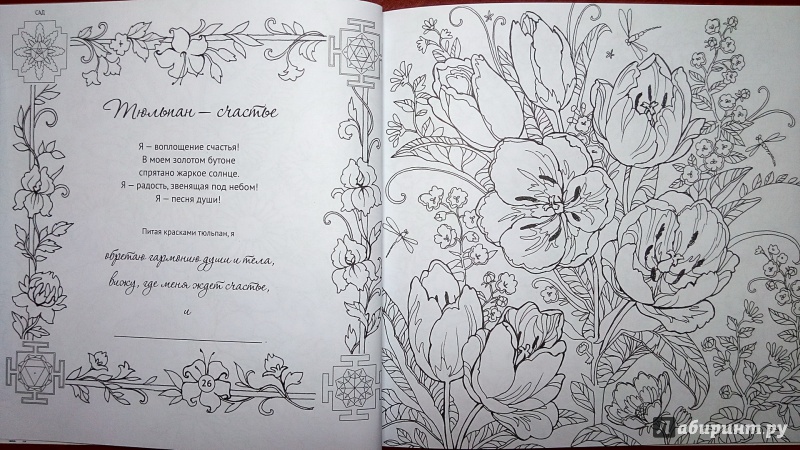 САД
Тюльпан — счастье
Я — воплощение счастья!
В моем золотом бутоне
спрятано жаркое солнце.
Я — радость, звенящая под небом!
Я — песня души!
Питая красками тюльпан, я
обретаю гармонию души и тела,
вижу, где меня ждет счастье,
и
26
Лабиринт.ру